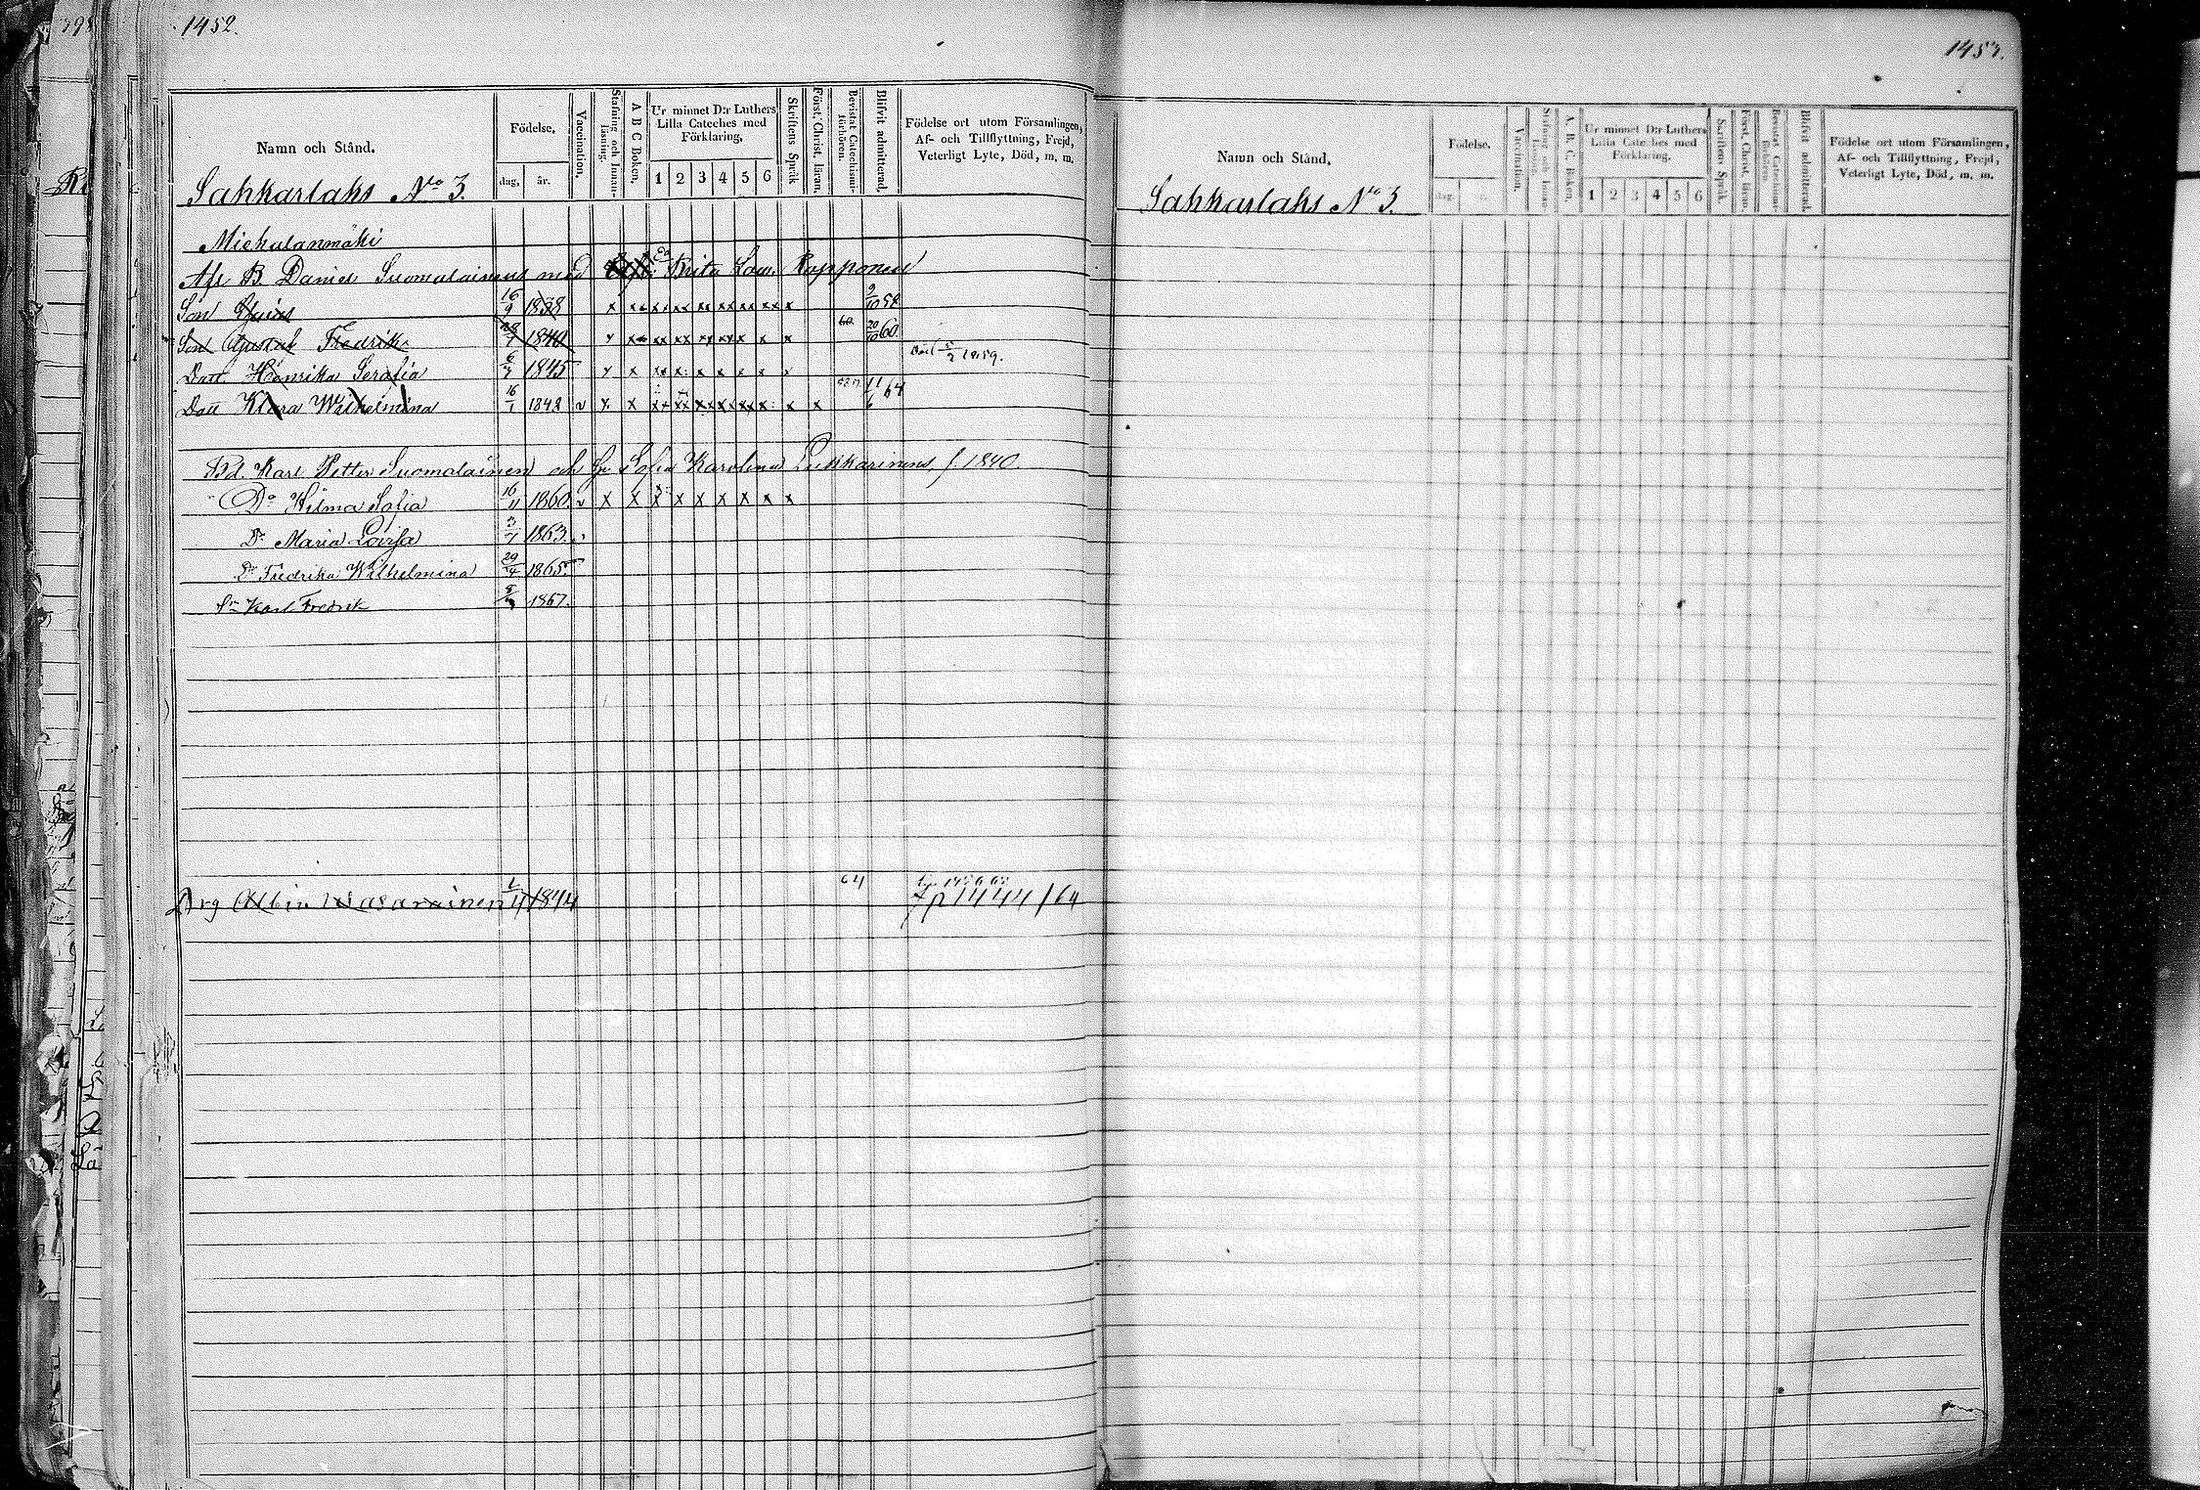 398
1452.
Namn och Stånd.
Födelse,
dag, år.
Vaccination.
Stafning och Innan-läsning.
A B C Boken.
Ur minnet D:r Luthers Lilla Cateches med Förklaring.
1 2 3 4 5 6
Skriftens Språk
Först. Christ. läran.
Bevistat Catechismi-förhören.
Blifvit admitterad.
Födelse ort utom Församlingen, Af- och Tillflyttning, Frejd, Veterligt Lyte, Död, m. m.
Sakkarlaks No 3.
Mickulanmäki
Afl B. Daniel Suomalainens med Brita Low. Ropponen
Son 16/9 1838 x x x x x x x x x 9/10 58
Son Gustaf Fredrik 1840 60. 20/10 60.
Dott. Henrika Serafia 1845 Död 5/2 1859.
Dott Klara Wilhelmina 16/1 1842 v x x x x x x x x x x 11/6 64
Bd. Karl Petter Suomalainen och Hu Sofia Karolina Pukkarinen f. 1840.
Do Hilma Sofia 16/11 1860. v x x x x x x x x x
Dr Maria Lovisa 3/7 1863.
Dr Fredrika Wilhelmina 29/4 1865.
Sn Karl Fredrik 1867.
Drg Albin Wasarainen 1844 64 p 1444 / 64
1453.
Namn och Stånd.
Födelse.
dag. år.
Vaccination.
Stafning och Innan-läsning.
A. B. C. Boken.
Ur minnet D:r Luthers Lilla Cateches med Förklaring.
1 2 3 4 5 6
Skriftens Språk.
Först. Christ. läran.
Bevistat Catechismi-förhören.
Blifvit admitterad.
Födelse ort utom Församlingen, Af- och Tillflyttning, Frejd, Veterligt Lyte, Död, m. m.
Sakkarlaks No 3.